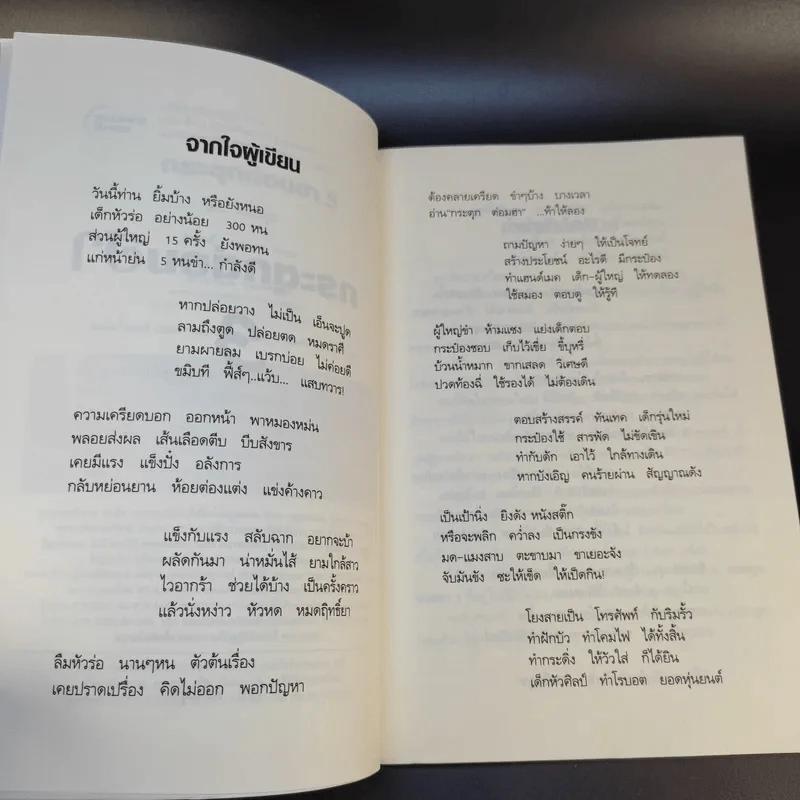 จากใจผู้เขียน
วันนี้ท่าน ยิ้มบ้าง หรือยังหนอ
เด็กหัวร่อ อย่างน้อย 300 หน
ส่วนผู้ใหญ่ 15 ครั้ง ยังพอทน
แก่หน้าย่น 5 หนขำ... กำลังดี
หากปล่อยวาง ไม่เป็น เอ็นจะปูด
ลามถึงตูด ปล่อยตด หมดราศี
ยามผายลม เบรกบ่อย ไม่ค่อยดี
ขมิบที ฟี้ส์ๆ..แว้บ... แสบทวาร!
ความเครียดบอก ออกหน้า พาหมองหม่น
พลอยส่งผล เส้นเลือดตีบ บีบสังขาร
เคยมีแรง แข็งปั๋ง อลังการ
กลับหย่อนยาน ห้อยต่องแต่ง แข่งค้างคาว
แข็งกับแรง สลับฉาก อยากจะบ้า
ผลัดกันมา น่าหมั่นไส้ ยามใกล้สาว
ไวอากร้า ช่วยได้บ้าง เป็นครั้งคราว
แล้วนั่งหง่าว หัวหด หมดฤทธิ์ยา
ลืมหัวร่อ นานๆหน ตัวต้นเรื่อง
เคยปราดเปรื่อง คิดไม่ออก พอกปัญหา
ต้องคลายเครียด ขำๆบ้าง บางเวลา
อ่าน"กระตุก ต่อมฮา" ...ท้าให้ลอง
ถามปัญหา ง่ายๆ ให้เป็นโจทย์
สร้างประโยชน์ อะไรดี มีกระป๋อง
ทำแฮนด์เมด เด็ก-ผู้ใหญ่ ให้ทดลอง
ใช้สมอง ตอบดู ให้รู้ที
ผู้ใหญ่ขำ ห้ามแซง แย่งเด็กตอบ
กระป๋องชอบ เก็บไว้เขี่ย ขี้บุหรี่
บ้วนน้ำหมาก ขากเสลด วิเศษดี
ปวดท้องฉี่ ใช้รองได้ ไม่ต้องเดิน
ตอบสร้างสรรค์ ทันเทค เด็กรุ่นใหม่
กระป๋องใช้ สารพัด ไม่ขัดเขิน
ทำกับดัก เอาไว้ ใกล้ทางเดิน
หากบังเอิญ คนร้ายผ่าน สัญญาณดัง
เป็นเป้านิ่ง ยิงดัง หนังสติ๊ก
หรือจะพลิก คว่ำลง เป็นกรงขัง
มด-แมงสาบ ตะขาบมา ขาเยอะจัง
จับมันขัง ซะให้เข็ด ให้เปิดกิน!
โยงสายเป็น โทรศัพท์ กับริมรั้ว
ทำฝักบัว ทำโคมไฟ ได้ทั้งสิ้น
ทำกระดิ่ง ให้วัวใส่ ก็ได้ยิน
เด็กหัวศิลป์ ทำโรบอต ยอดหุ่นยนต์